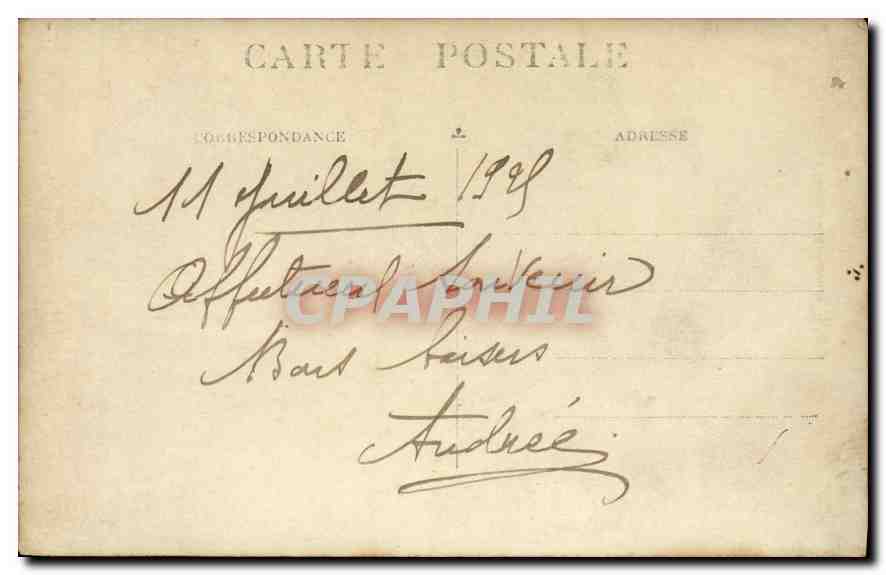 CARTE POSTALE
CORRESPONDANCE ADRESSE
11 Juillet 1925
Affectueux Souvenir
CPAPHIL
Bons baisers
Andrée